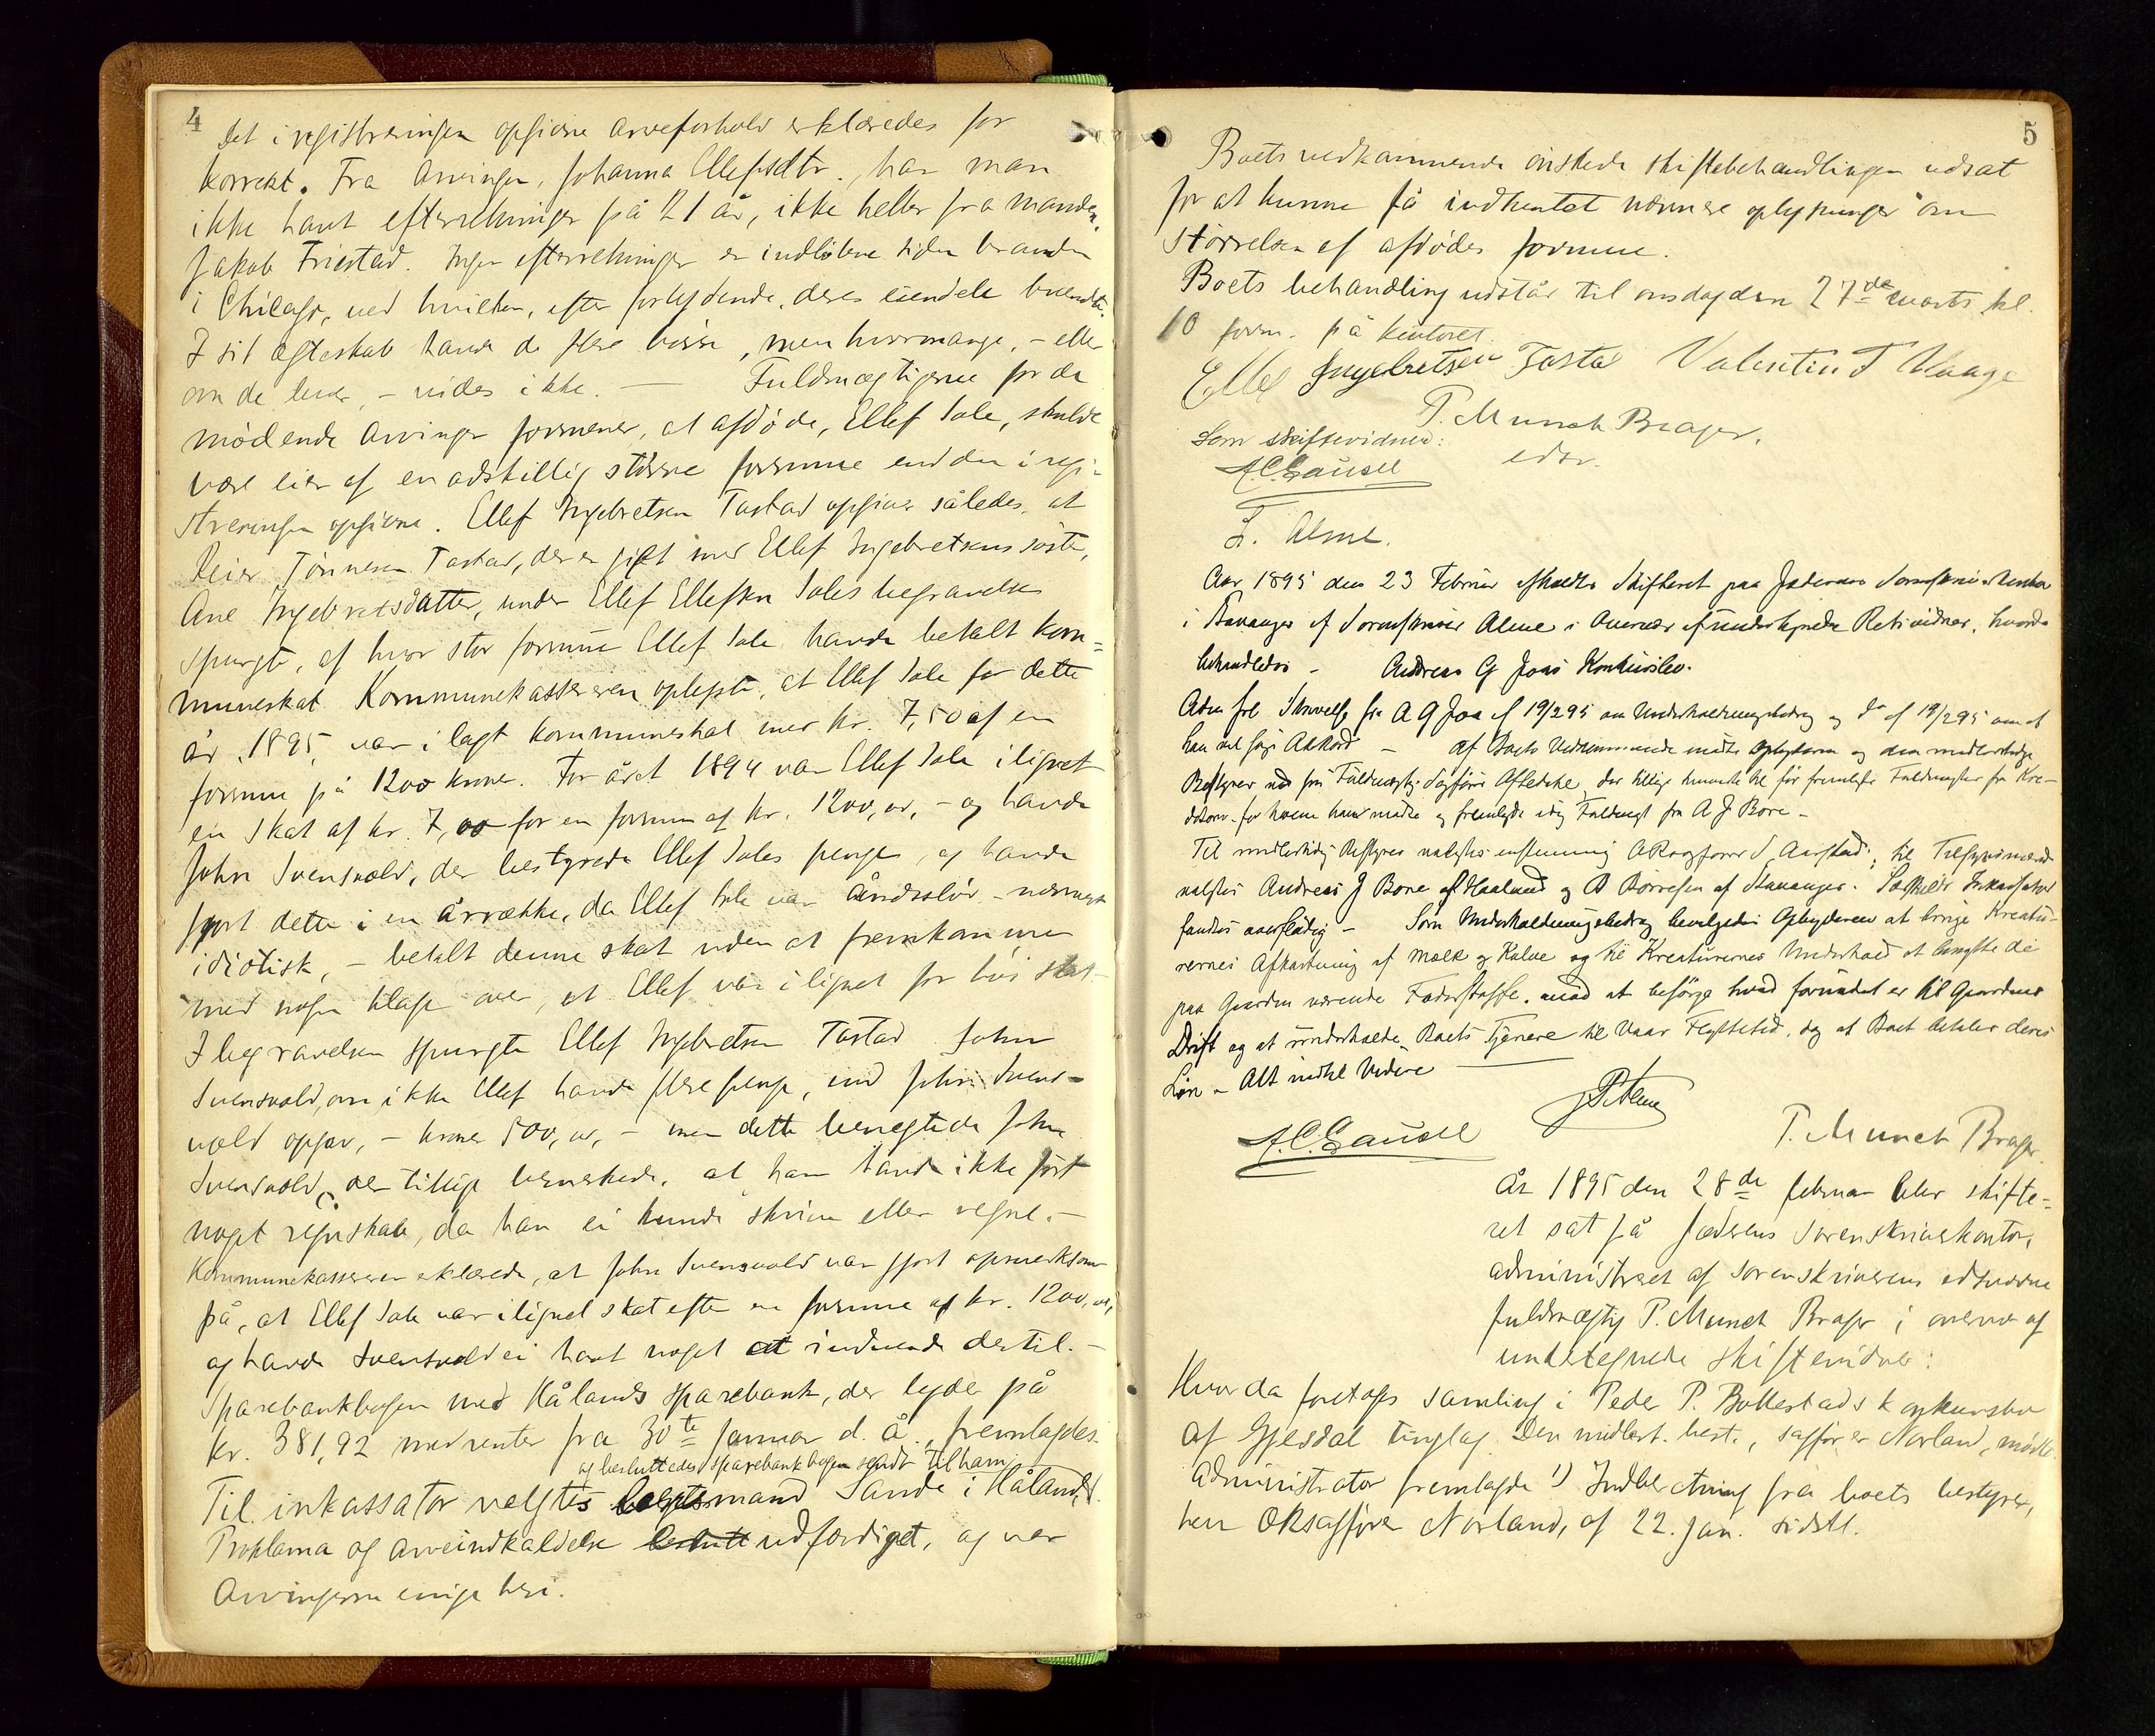 4
Det i registreringen opgivne arveforhold erklæredes for
korrekt. Fra arvingen, Johanna Ellefsdtr., har man
ikke havt efterretninger på 21 år, ikke heller fra manden,
Jakob Friestad. Ingen efterretninger er indløbne siden branden
i Chicago, ved hvilken, efter forlydende, deres eiendele brændte.
I sit ægteskab havde de flere börn, men hvormange, - eller
om de lever, - vides ikke. — Fuldmægtigerne for de
mödende arvinger formener, at afdöde, Ellef Sole, skulde
være eier af en adskillig större formue end den i regi-
streringen opgivne. Ellef Ingebretsen Tastad opgiver således, at
Reier Tönnesen Tastad, der er gift med Ellef Ingebretsens söster,
Ane Ingebretsdatter, under Ellef Ellefsen Soles begravelse
spurgte, af hvor stor formue Ellef Sole havde betalt kom=
muneskat. Kommunekassereren oplyste, at Ellef Sole for dette
år, 1895, var ilagt kommuneskat med kr. 7,50 af en
formue på 1200 kroner. For året 1894 var Ellef Sole ilignet
en skat af kr. 7,00 for en formue af kr. 1200,00, - og havde
John Svensvold, der bestyrede Ellef Soles penge, og havde
gjort dette i en årrække, da Ellef Sole var åndsslöv - nærmest
idiotisk, - betalt denne skat uden at fremkomme
med nogen klage over, at Ellef var ilignet for höi skat.-
I begravelsen spurgte Ellef Ingebretsen Tastad John
Svensvold, om ikke Ellef havde flere penge, end John Svens-
vold opgav, - kroner 500,00, - men dette benegtede John
Svensvold, der tillige bemerkede, at han havde ikke fört
noget regnskab, da han ei kunde skrive eller regne.-
Kommunekassereren erklærede, at John Svensvold var gjort opmerksom
på, at Ellef Sole var ilignet skat efter en formue af kr. 1200,00,
og havde Svensvold ei havt noget at indvende dertil.-
Sparebankbogen med Hålands sparebank, der lyder på
kr. 381,92 med renter fra 30te januar d. å., fremlagdes.
og besluttedes sparebankbogen sendt til ham
Til inkassator valgtes lensmand Sande i Håland.
Proklama og arveindkaldelse beslutt udfærdiget, og var
arvingerne enige heri.
5
Boets vedkommende önskede skiftebehandlingen udsat
for at kunne få indhentet nærmere oplysninger om
störrelsen af afdödes formue.
Boets behandling udstår til onsdag den 27de marts kl.
10 form. på kontoret.
Ellef Ingebretsen Tasta Valentin T Haage
P. Munch Brager.
Som skiftevidner: edsv.
A.C. Gausel
L. Alme.
Aar 1895 den 23 Februar afholdtes Skifteret paa Jæderens Sorenskriverkontor
i Stavanger af Sorenskriver Alme i Overvær af undertegnede Retsvidner, hvorda
behandledes - Andreas G Joas Konkursbo.
Adm frl Skrivelse fra A G Joa af 19/2 95 om Underholdningsbidrag og do af 19/2 95 om at
han vil søge Akkord - af Boets Vedkommende mødte Opbyderen og den midlertidige
Bestyrer ved sin Fuldmægtig Sagfører Aftedahl, der tillige henviste til før fremlagte Fuldmagter fra Kre-
ditorer for hvem han mødte og fremlagde idag Fuldmagt fra A J Bore -
Til midlertidig Bestyrer valgtes enstemmig ORsagfører S. Aarstad; til Tilsynsmænd
valgtes Andreas J Bore af Haaland og B Börresen af Stavanger. Særskildt Inkassator
fandtes overflødig - Som Underholdningsbidrag bevilgedes Opbyderen at bruge Kreatu-
rernes Afkastning af Mælk og Kalve og til Kreaturernes Underhold at benytte de
paa Gaarden værende Foderstoffe, mod at besörge hvad fornödent er til Gaardens
Drift og at underholde Boets Tjenere til Vaar Flyttetid, og at Boet betaler deres
Løn - Alt indtil Videre —
A.C. Gausel
P. Munch Brager
År 1895 den 28de februar blev skifte-
ret sat på Jæderens sorenskriverkontor,
administreret af sorenskriverens edsvorne
fuldmægtig P. Munch Brager i overvær af
undertegnede skiftevidner:
Hvorda foretoges samling i Peder P. Bollestads konkursbo
af Gjesdal tinglag. Den midlert. best., sagförer Norland, mödte.
Administrator fremlagde 1) Indberetning fra boets bestyrer,
herr ORsagförer Norland, af 22. jan. sidstl.